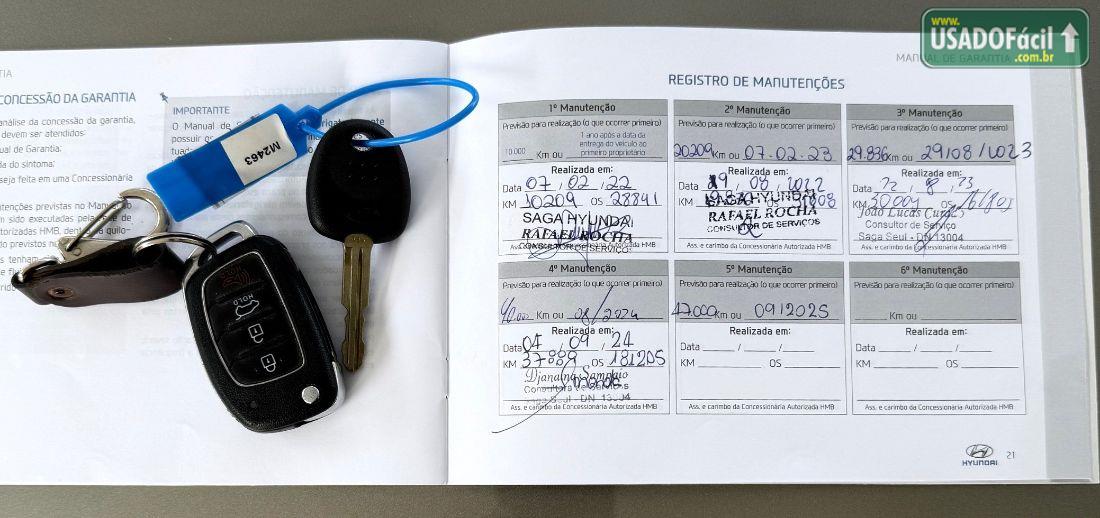 www.
USADOFácil
.com.br
TIA
CONCESSÃO DA GARANTIA
análise da concessão da garantia,
devem ser atendidos:
ual de Garantia;
da do sintoma;
seja feita em uma Concessionária
tenções previstas no Man
m sido executadas pela
torizadas HMB, dent
do previstos n
s tenham
IMPORTANTE
O Manual de
possuir
M2463
HOLD
MANUAL DE GARANTIA
REGISTRO DE MANUTENÇÕES
1º Manutenção
Previsão para realização (o que ocorrer primeiro)
10.000 Km ou 1 ano após a data da
entrega do veículo ao
primeiro proprietário
Realizada em:
Data 07 / 02 / 22
KM 10209 OS 28841
SAGA HYUNDAI
RAFAEL ROCHA
CONSULTOR DE SERVIÇOS
2º Manutenção
Previsão para realização (o que ocorrer primeiro)
20209 Km ou 07.02.23
Realizada em:
Data 29 / 08 / 2022
KM OS
SAGA HYUNDAI
RAFAEL ROCHA
CONSULTOR DE SERVIÇOS
Ass. e carimbo da Concessionária Autorizada HMB
3º Manutenção
Previsão para realização (o que ocorrer primeiro)
29.836 Km ou 29/08/2023
Realizada em:
Data / 8 / 23
KM 30004 OS
João Lucas
Consultor de Serviço
Saga Seul - DN 13004
Ass. e carimbo da Concessionária Autorizada HMB
4º Manutenção
Previsão para realização (o que ocorrer primeiro)
40.000 Km ou 08/2024
Realizada em:
Data 04 / 09 / 24
KM 37889 OS 181205
Djanaína Sampaio
Consultora de Serviços
Saga Seul - DN 13004
Ass. e carimbo da Concessionária Autorizada HMB
5º Manutenção
Previsão para realização (o que ocorrer primeiro)
47.000 Km ou 09/2025
Realizada em:
Data ____ / ____ / ____
KM ________ OS ________
Ass. e carimbo da Concessionária Autorizada HMB
6º Manutenção
Previsão para realização (o que ocorrer primeiro)
______ Km ou ____________
Realizada em:
Data ____ / ____ / ____
KM ________ OS ________
Ass. e carimbo da Concessionária Autorizada HMB
HYUNDAI
21